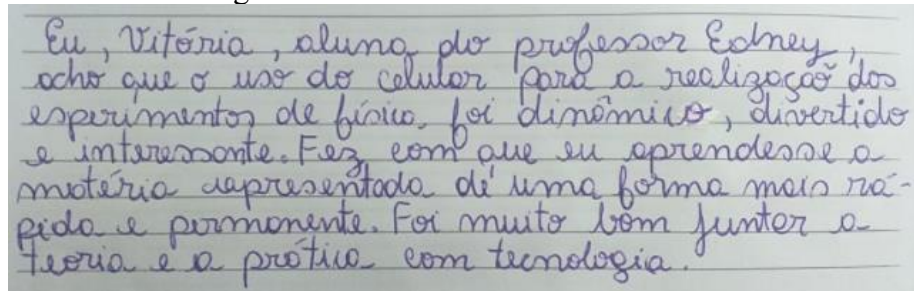 Eu, Vitória, aluna do professor Edney,
acho que o uso do celular para a realização dos
experimentos de física, foi dinâmico, divertido
e interessante. Fez com que eu aprendesse a
matéria apresentada de uma forma mais rá-
pida e permanente. Foi muito bom juntar a
teoria e a prática com tecnologia.